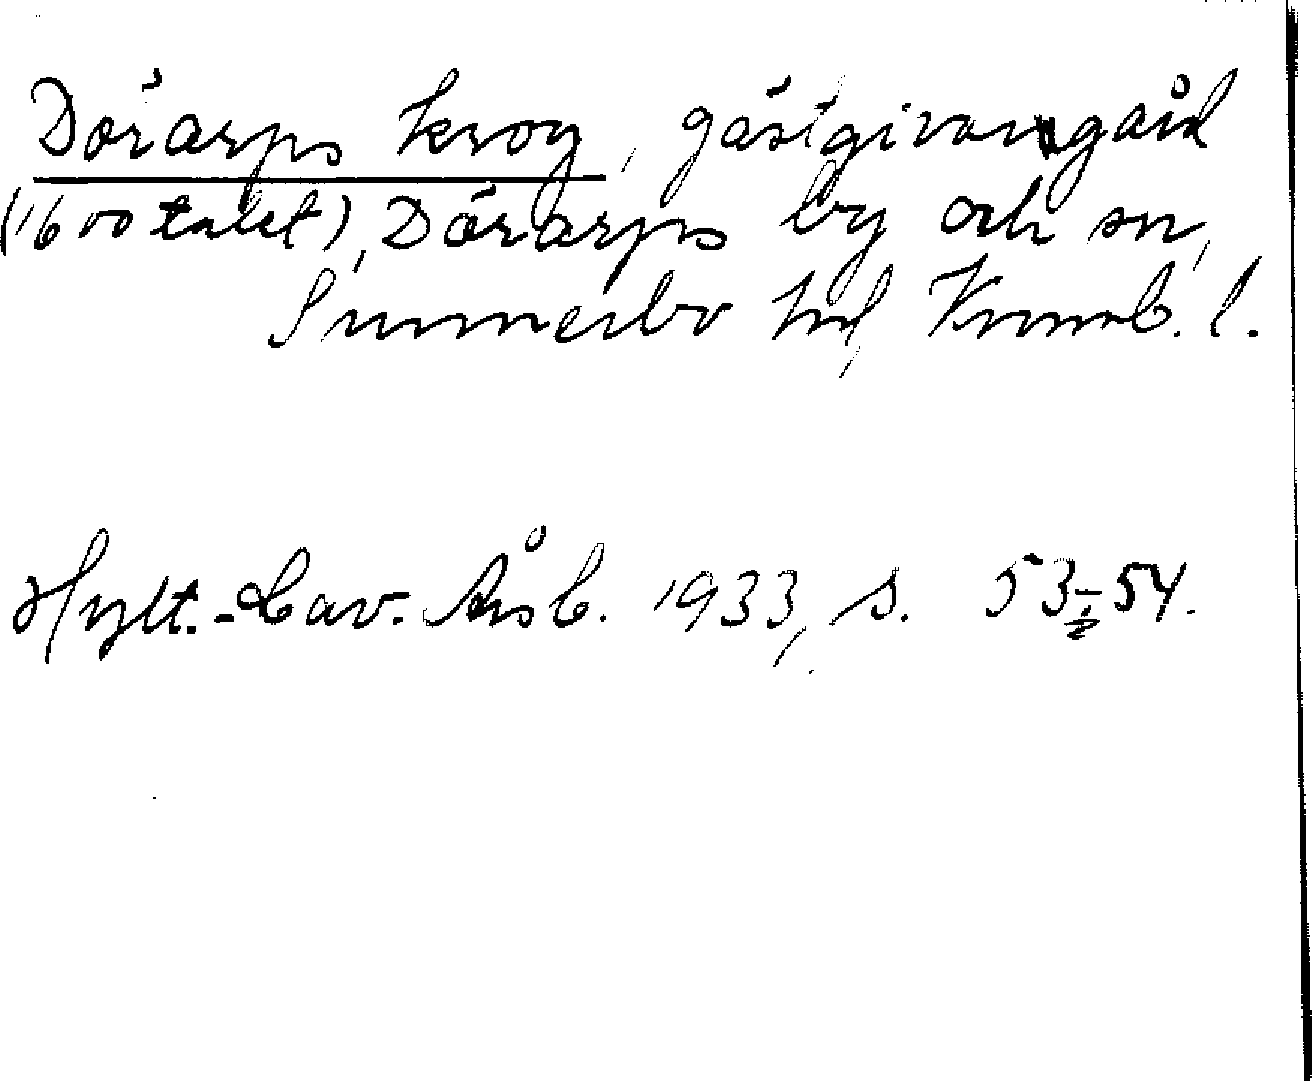 Dörarps krog, gästgivaregård
(1600 talet), Dörarps by och sn,
Sunnerbo hd, Kronob. l.
Hylt.-Cav. Årsb. 1933, s. 53-54.